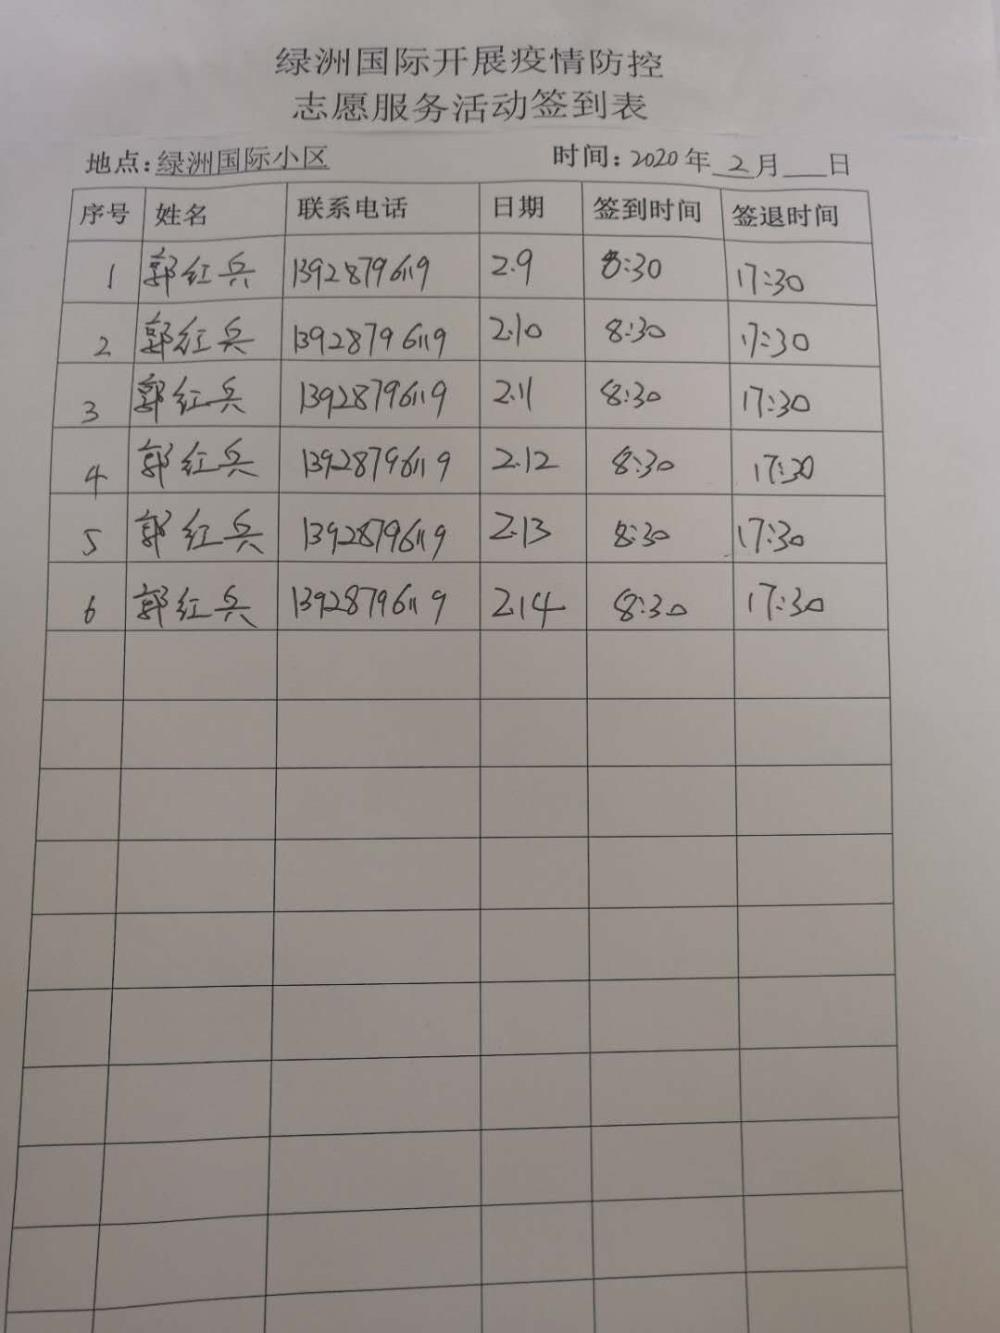 绿洲国际开展疫情防控
志愿服务活动签到表
地点:绿洲国际小区 时间:2020年 2 月 日
序号 姓名 联系电话 日期 签到时间 签退时间
1 郭红兵 13928796119 2.9 8:30 17:30
2 郭红兵 13928796119 2.10 8:30 17:30
3 郭红兵 13928796119 2.11 8:30 17:30
4 郭红兵 13928796119 2.12 8:30 17:30
5 郭红兵 13928796119 2.13 8:30 17:30
6 郭红兵 13928796119 2.14 8:30 17:30